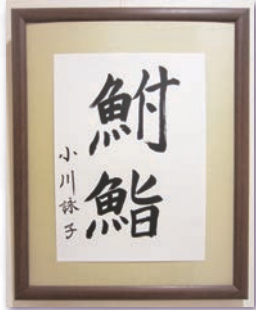 鮒鮨
小川詠子